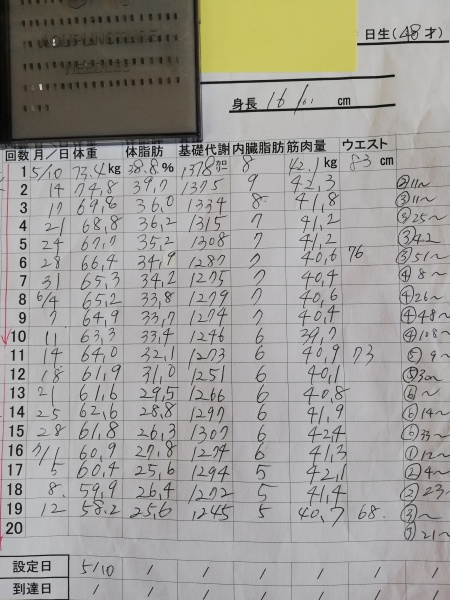 日生(48才)
身長 161 cm
回数 月/日 体重 体脂肪 基礎代謝 内臓脂肪 筋肉量 ウエスト
1 5/10 73.4 kg 38.8 % 1378 8 42.1 kg 83 cm
2 14 74,8 39,7 1375 9 42,3 ②11~
3 17 69,8 36,0 1334 8 41,8 ③11~
4 21 68,8 36,2 1315 7 41,2 ③25~
5 24 67,7 35,2 1308 7 41,2 ③42
6 28 66,4 34,9 1287 7 40,6 76 ③51~
7 31 65,3 34,2 1275 7 40,4 ④8~
8 6/4 65,2 33,8 1279 7 40,6 ④26~
9 7 64,9 33,7 1274 7 40,4 ④48~
10 11 63,3 33,4 1246 6 39,7 ④108~
11 14 64,0 32,1 1273 6 40,9 73 ⑤9~
12 18 61,9 31,0 1251 6 40,1 ⑤30~
13 21 61,6 29,5 1266 6 40,8 ⑥~
14 25 62,6 28,8 1297 6 41,9 ⑥14~
15 28 61,8 26,3 1307 6 42,4 ⑥33~
16 7/1 60,9 27,8 1274 6 41,3 ①12~
17 5 60,4 25,6 1294 5 42,1 ②4~
18 8. 59,9 26,4 1272 5 41,4 ②23~
19 12 58,2 25,6 1245 5 40,7 68. ③~
20 21~
設定日 5/10 / / / / / /
到達日 / / / / / / /